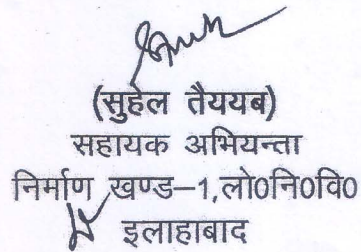 (सुहेल तैययब)
सहायक अभियन्ता
निर्माण खण्ड–1,लो0नि0वि0
इलाहाबाद